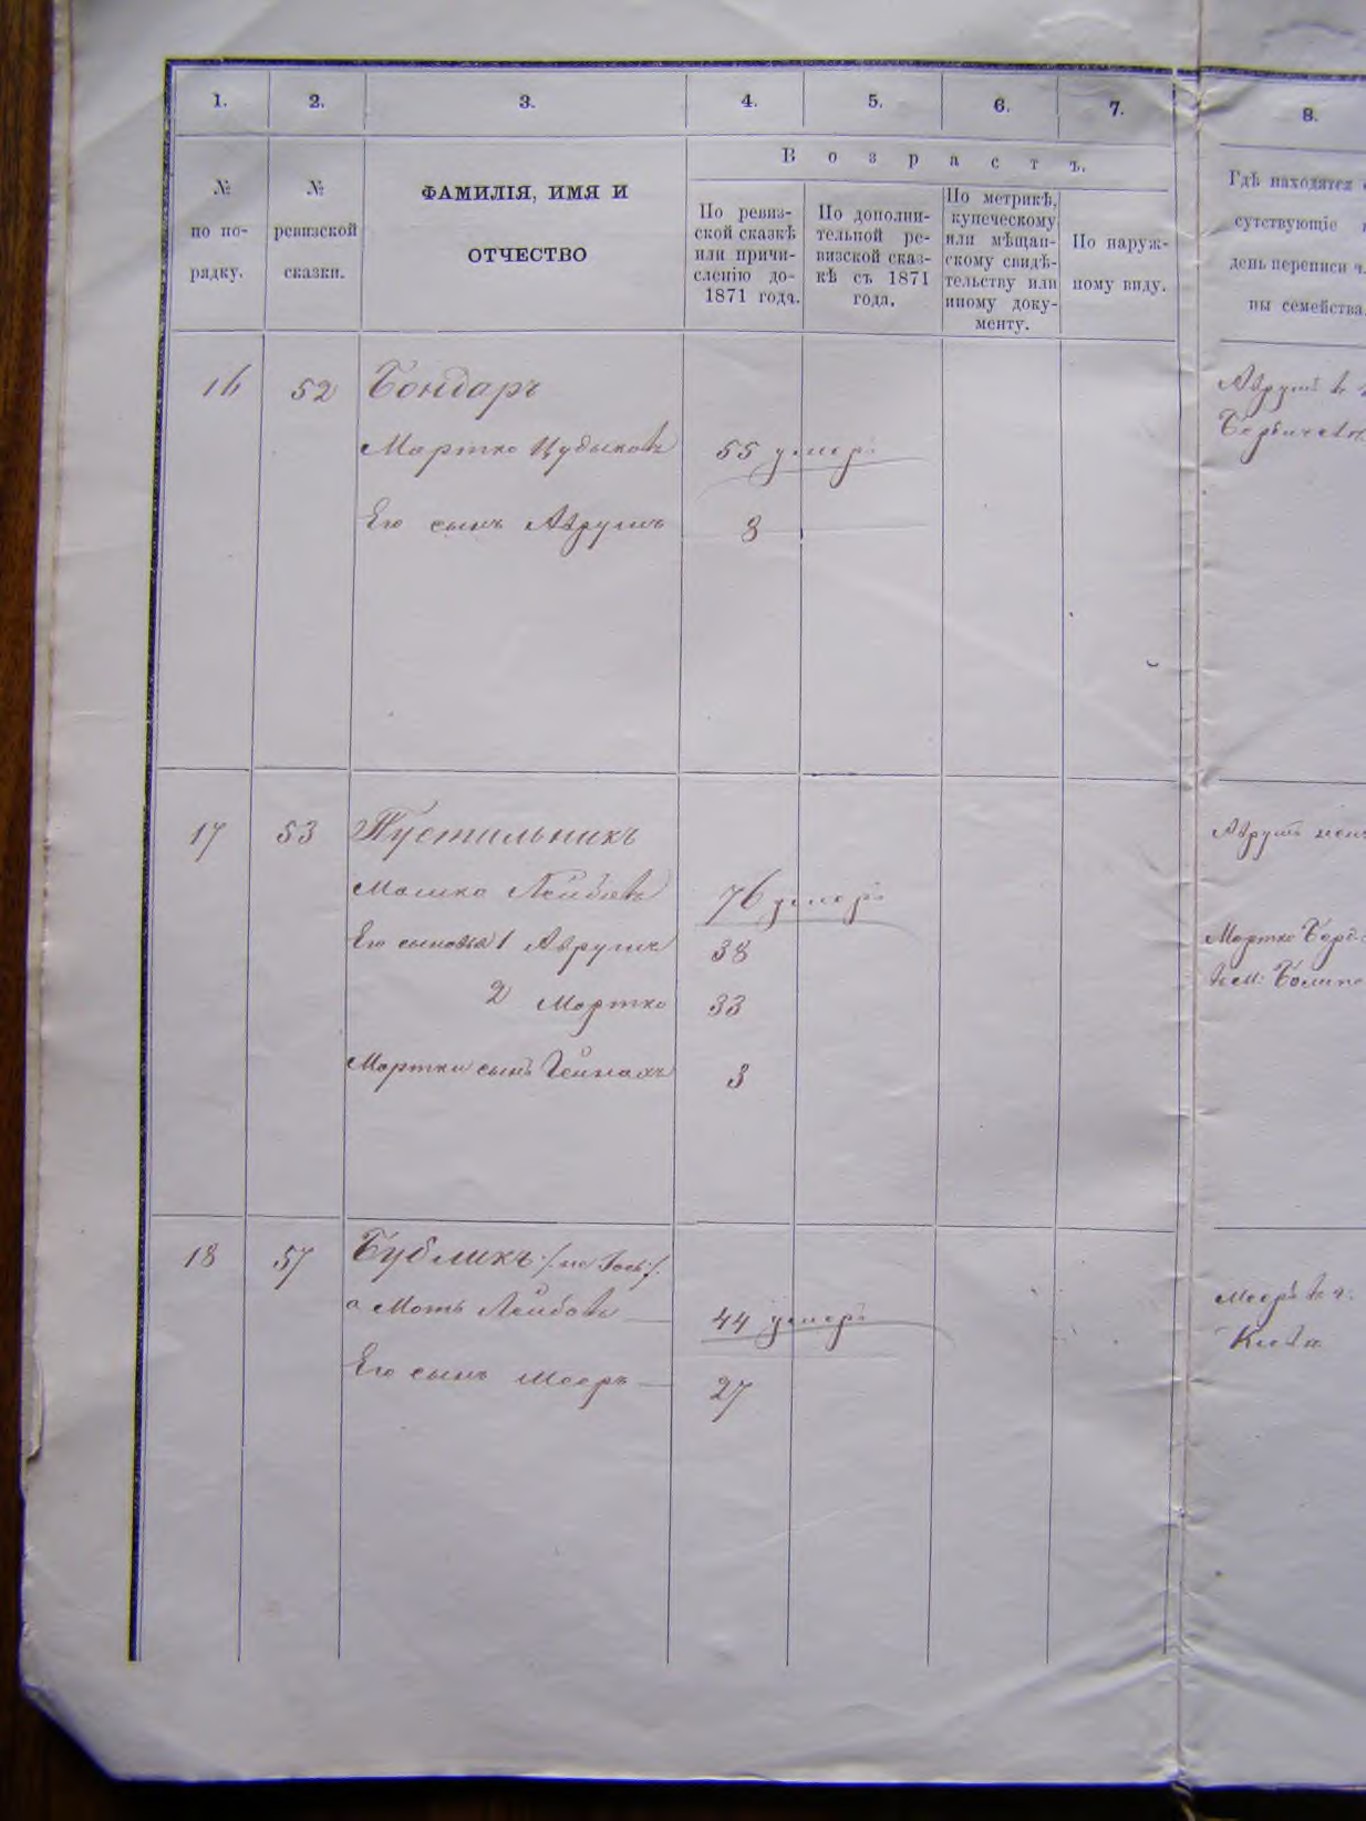 1. 2. 3. 4. 5. 6. 7. 8.
№ по по-рядку.
№ ревизской сказки.
ФАМИЛІЯ, ИМЯ И
ОТЧЕСТВО
Возрастъ.
По ревиз-
ской сказкѣ
или причи-
сленію до
1871 года.
По дополни-
тельной ре-
визской сказ-
кѣ съ 1871
года.
По метрикѣ,
купеческому
или мѣщан-
скому свидѣ-
тельству или
иному доку-
менту.
По наруж-
ному виду.
Гдѣ находятся
сутствующіе
день переписи
ны семейства.
16 52 Бондаръ
Мортко Цудыковъ 55 умеръ
Его сынъ Аврумъ 8
Аврумъ въ
17 53 Пустильникъ
Мошко Лейбовъ 76 умеръ
Его сыновья 1 Аврумъ 38
2 Мортко 33
Мортки сынъ 3
Аврумъ
Мортко
18 57 Бубликъ /: не Іось :/
а Моть Лейбовъ 44 умеръ
Его сынъ Мееръ 27
Мееръ въ г.
Кіевѣ